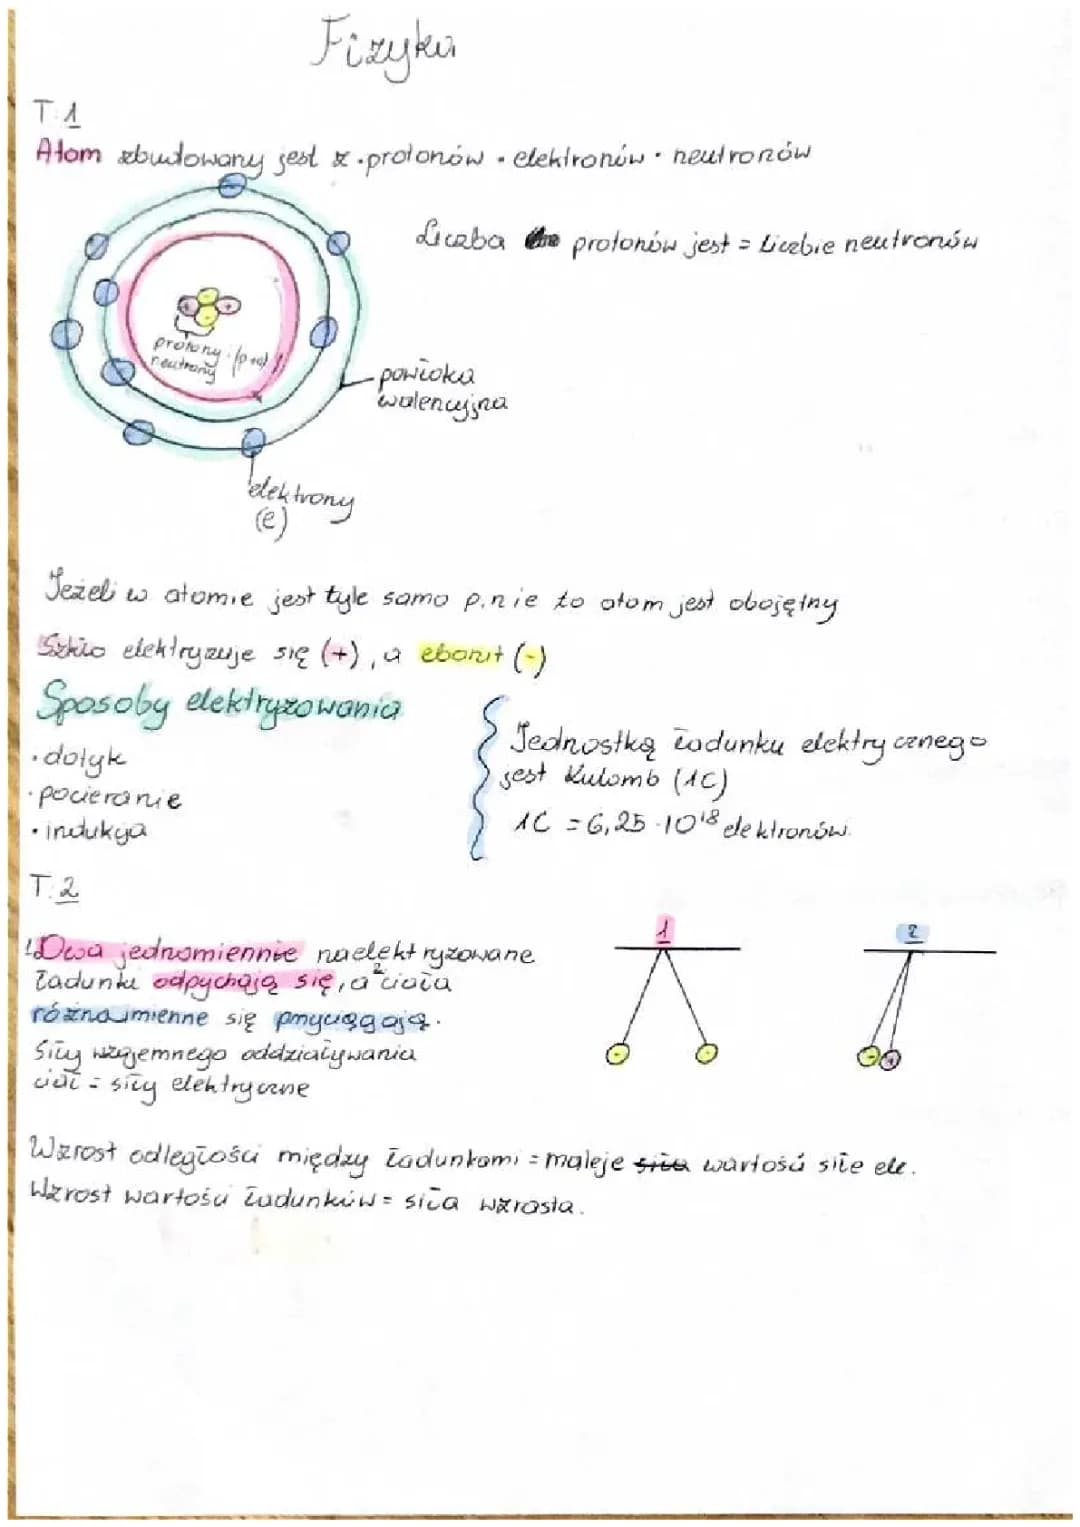 Fizyka
T.1
Atom zbudowany jest z • protonów • elektronów • neutronów
Liczba protonów jest = Liczbie neutronów
protony i (p+n)
neutrony
powłoka
walencyjna
elektrony
(e)
Jeżeli w atomie jest tyle samo p. n i e to atom jest obojętny
Szkło elektryzuje się (+), a ebonit (-)
Sposoby elektryzowania
• dotyk
• pocieranie
• indukcja
Jednostką ładunku elektrycznego
jest Kulomb (1C)
1C = 6,25 · 10¹⁸ elektronów.
T.2
1 Dwa jednomiennie naelektryzowane
ładunki odpychają się, a 2 ciała
różnaimienne się przyciągają.
Siły wzajemnego oddziaływania
ciał = siły elektryczne
1
2
- -
- +
Wzrost odległości między ładunkami = maleje siła wartość siłe ele.
Wzrost wartości ładunków = siła wzrasta.